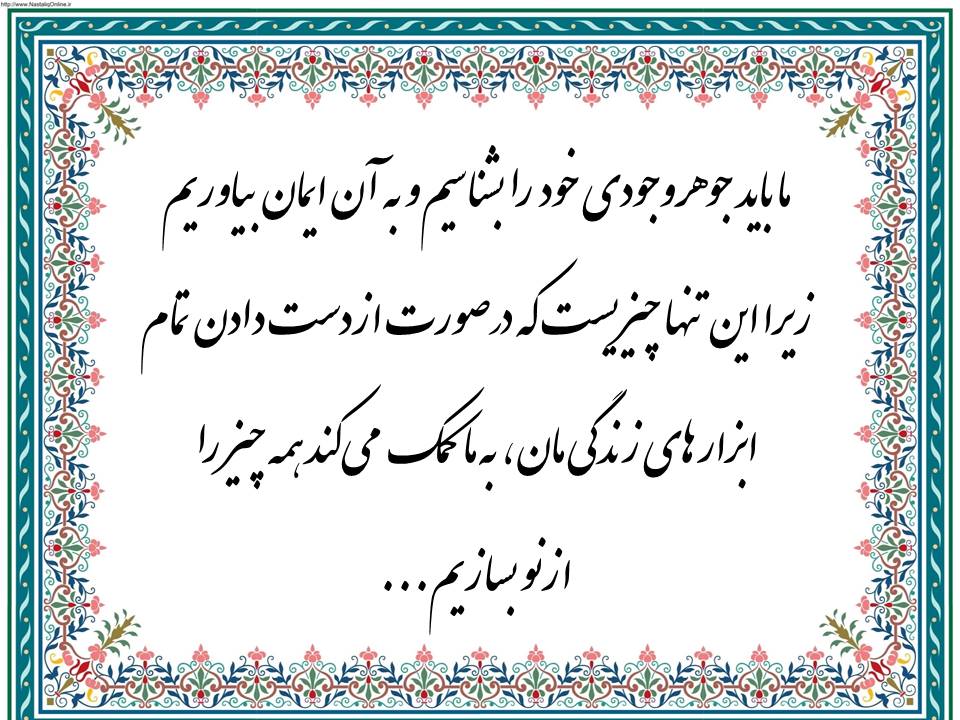 http://www.NastaliqOnline.ir
ما باید جوهر وجودی خود را بشناسیم و به آن ایمان بیاوریم
زیرا این تنها چیزیست که در صورت از دست دادن تمام
ابزار های زندگی مان، به ما کمک می کند همه چیز را
از نو بسازیم...